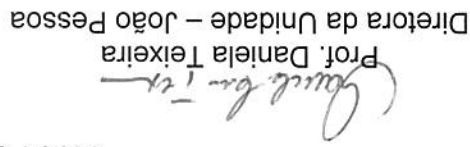 Prof. Daniela Teixeira
Diretora da Unidade – João Pessoa